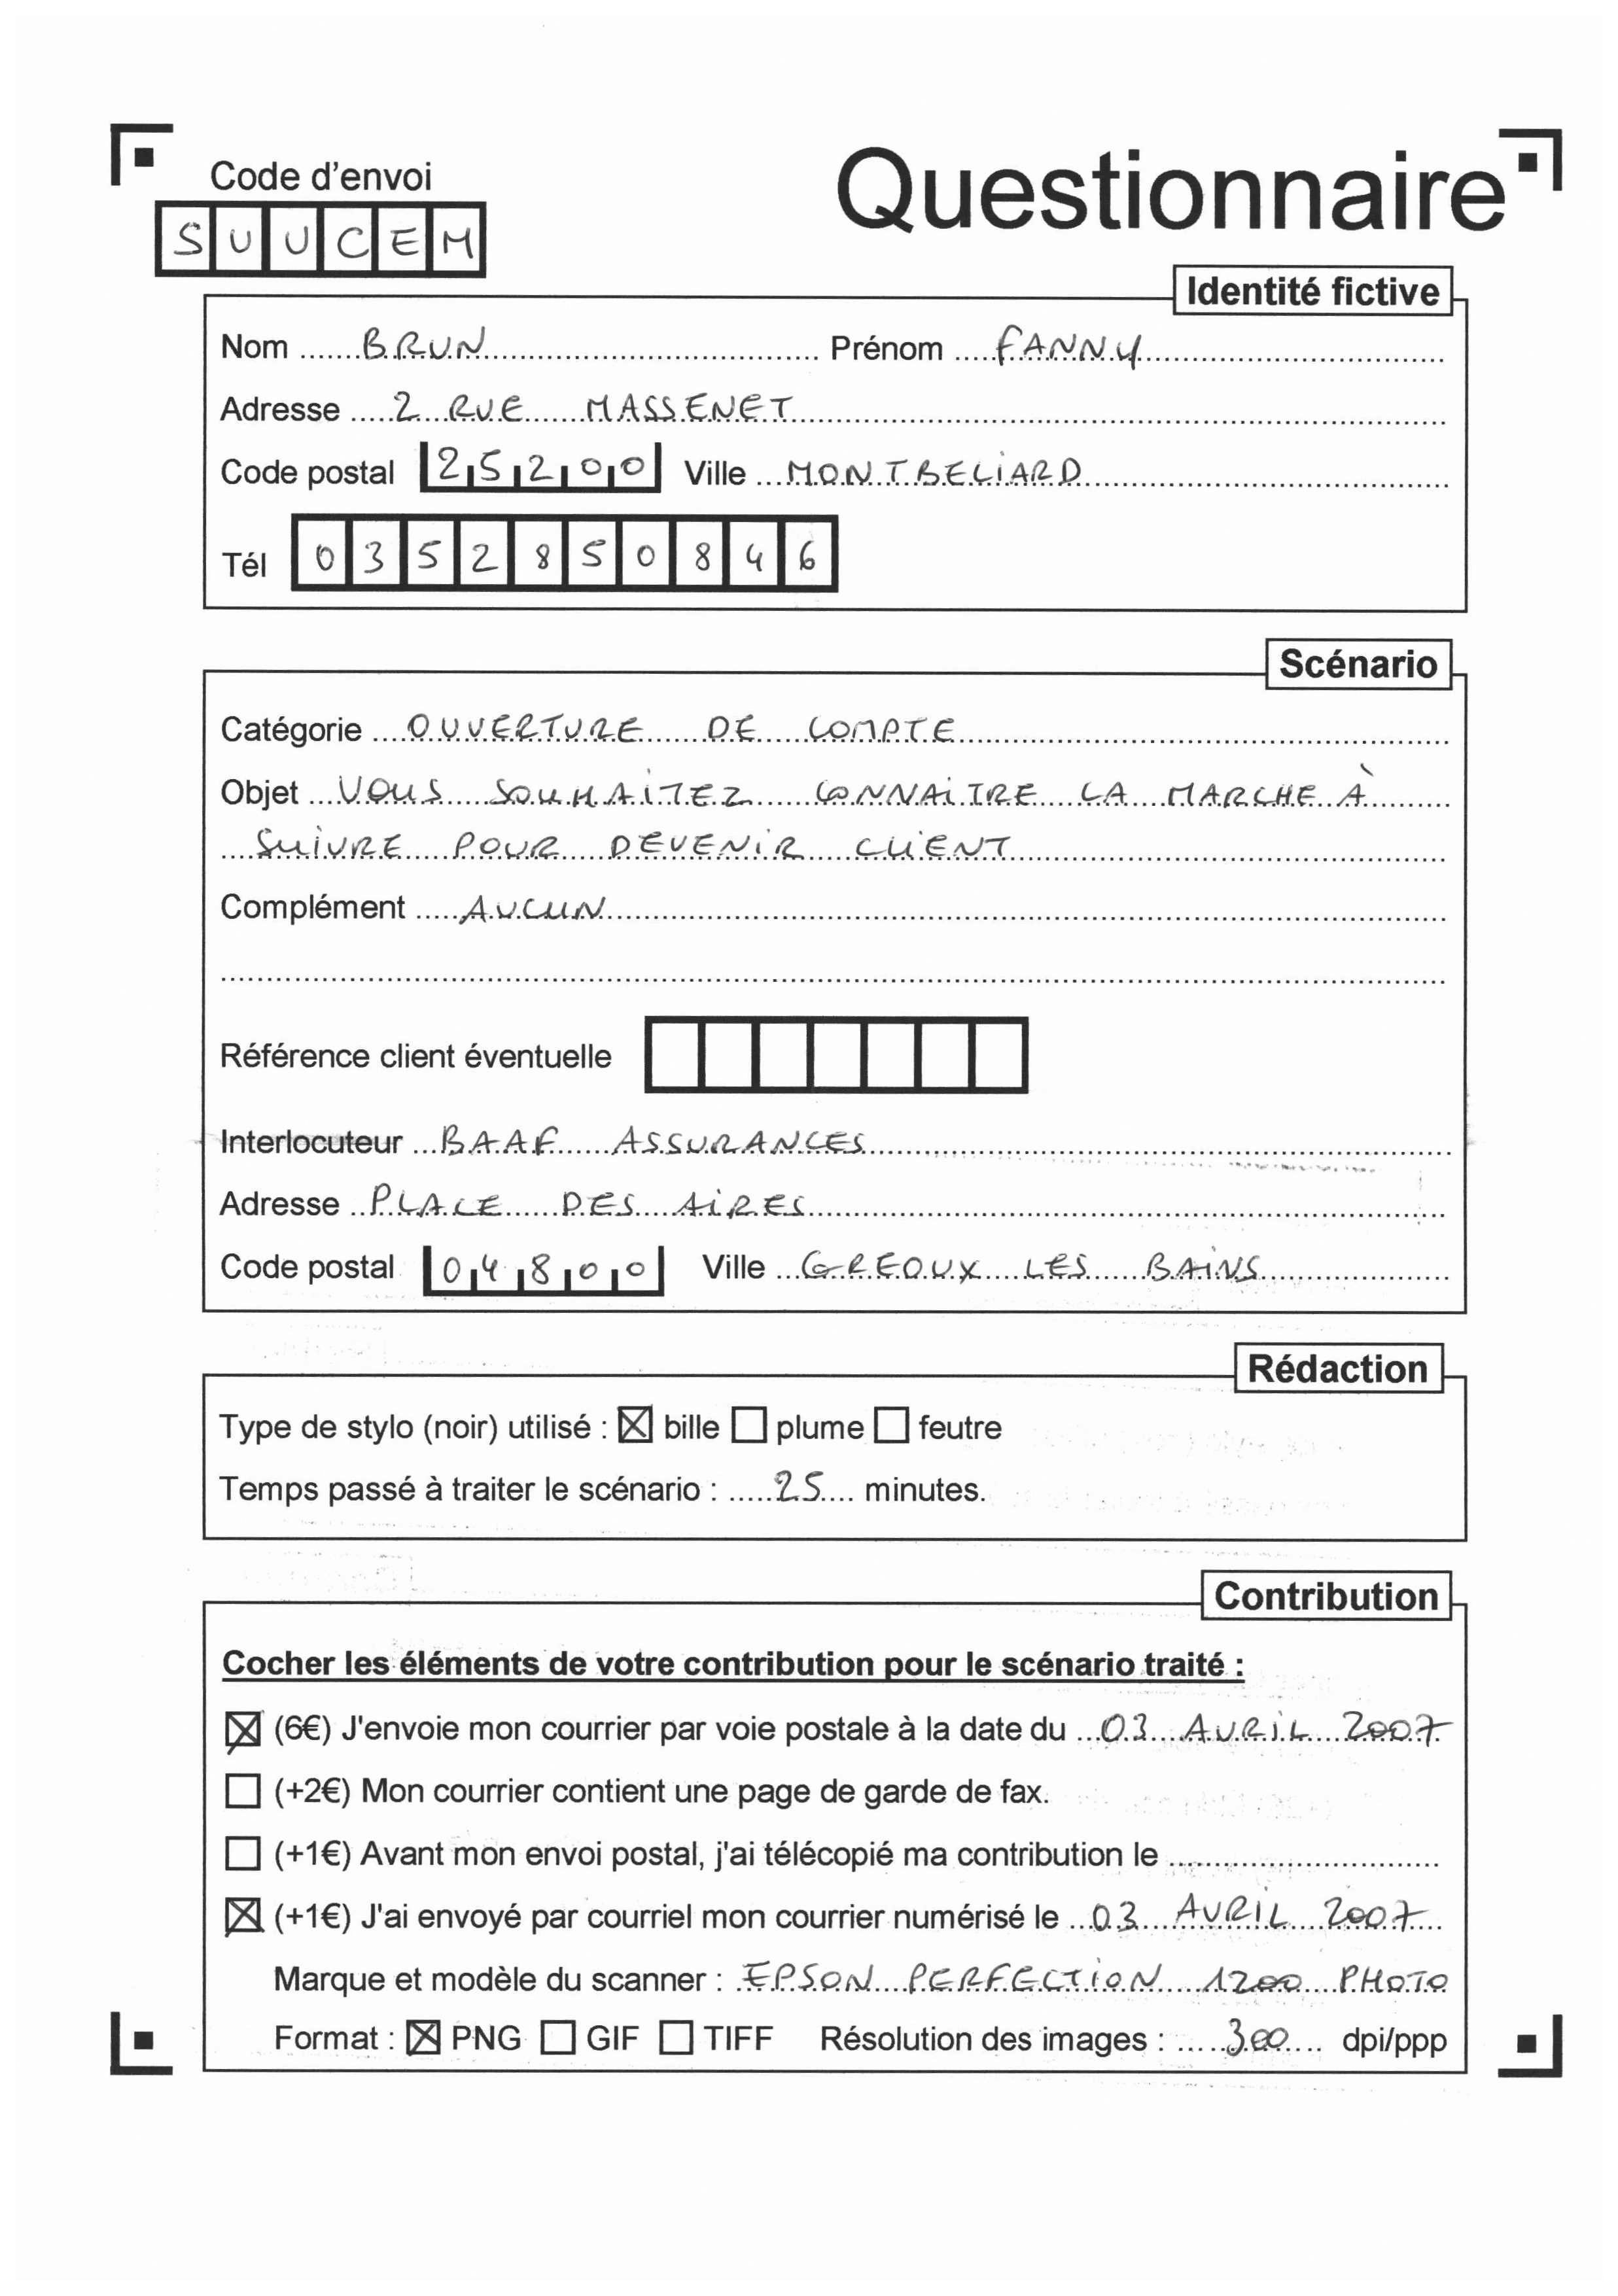 Code d'envoi
SUUCEM
Questionnaire
Identité fictive
Nom BRUN Prénom FANNY
Adresse 2 RUE MASSENET
Code postal 25200 Ville MONTBELIARD
Tél 0352850846
Scénario
Catégorie OUVERTURE DE COMPTE
Objet VOUS SOUHAITEZ CONNAITRE LA MARCHE À
SUIVRE POUR DEVENIR CLIENT
Complément AUCUN
Référence client éventuelle
Interlocuteur BAAF ASSURANCES
Adresse PLACE DES AIRES
Code postal 04800 Ville GREOUX LES BAINS
Rédaction
Type de stylo (noir) utilisé : ☒ bille ☐ plume ☐ feutre
Temps passé à traiter le scénario : 25 minutes.
Contribution
Cocher les éléments de votre contribution pour le scénario traité :
☒ (6€) J'envoie mon courrier par voie postale à la date du 03 AVRIL 2007
☐ (+2€) Mon courrier contient une page de garde de fax.
☐ (+1€) Avant mon envoi postal, j'ai télécopié ma contribution le
☒ (+1€) J'ai envoyé par courriel mon courrier numérisé le 03 AVRIL 2007
Marque et modèle du scanner : EPSON PERFECTION 1200 PHOTO
Format : ☒ PNG ☐ GIF ☐ TIFF Résolution des images : 300 dpi/ppp